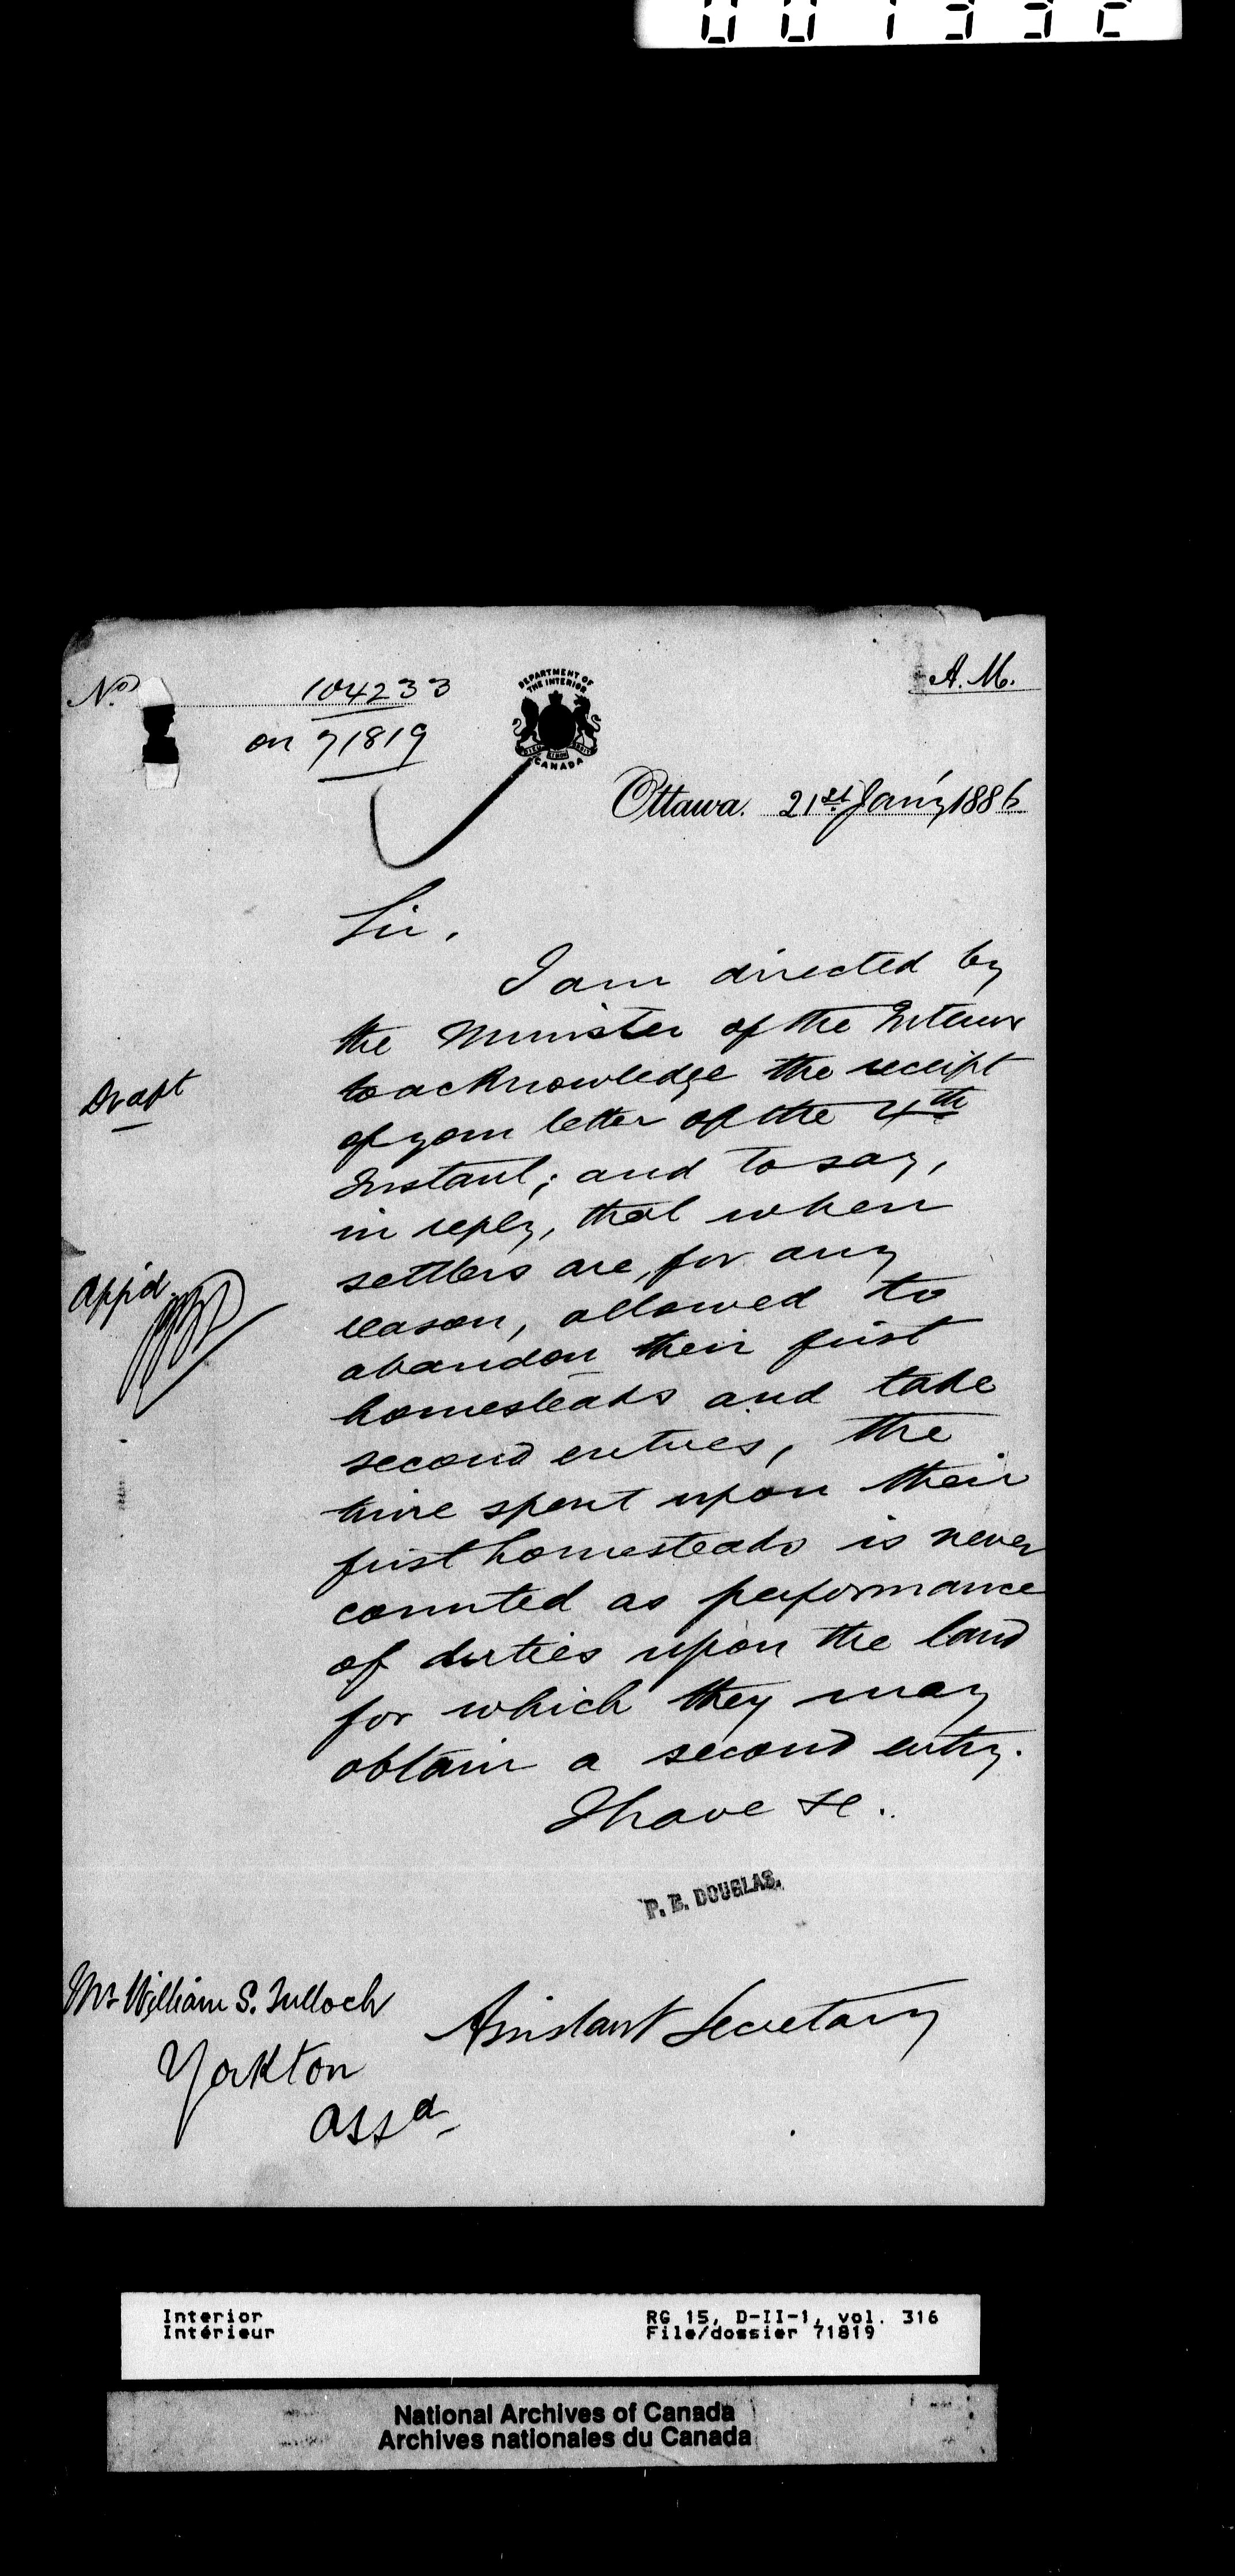 001332
No. 104233
on 71819
DEPARTMENT OF
THE INTERIOR
CANADA
A. M.
Ottawa. 21st Jan'y 1886
Sir,
I am directed by
the Minister of the Interior
to acknowledge the receipt
of your letter of the 4th
Instant; and to say,
in reply, that when
settlers are, for any
reason, allowed to
abandon their first
homesteads and take
second entries, the
time spent upon their
first homesteads is never
counted as performance
of duties upon the land
for which they may
obtain a second entry.
I have &c.
Draft
App'd
P. B. DOUGLAS.
Assistant Secretary
Mr William S. Tulloch
Yorkton
Assa
Interior
Intérieur
RG 15, D-II-1, vol. 316
File/dossier 71819
National Archives of Canada
Archives nationales du Canada